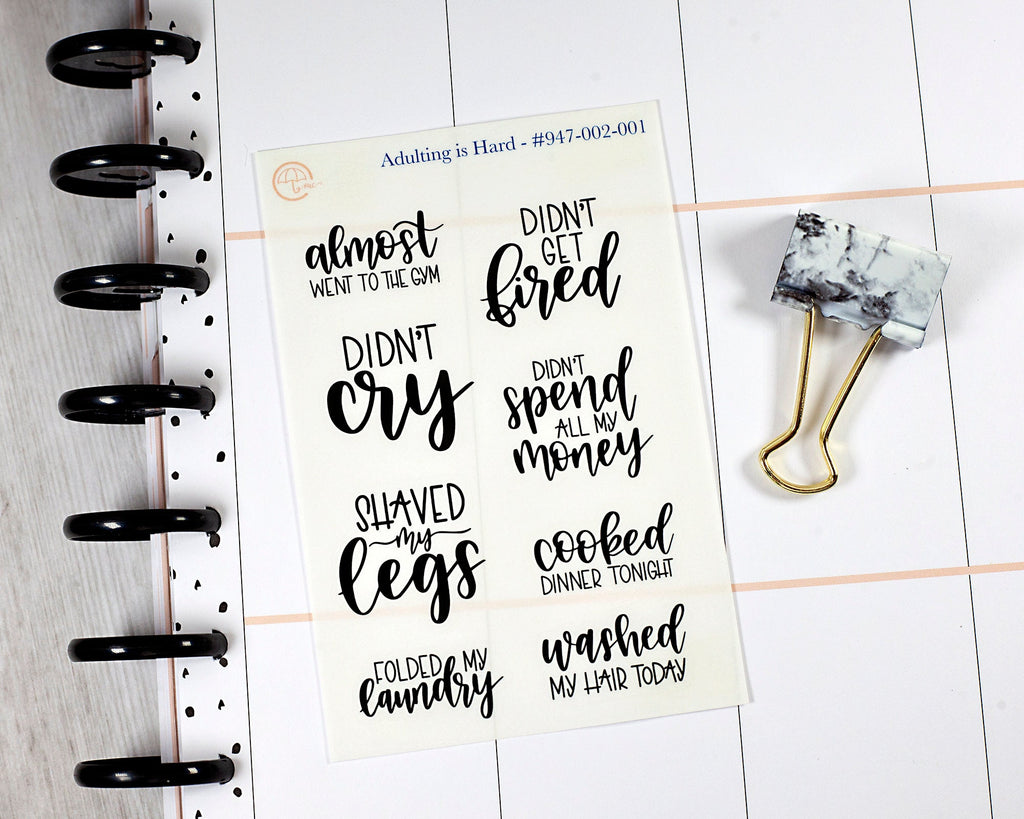 Adulting is Hard - #947-002-001
almost
WENT TO THE GYM
DIDN'T
cry
SHAVED
my
legs
FOLDED MY
laundry
DIDN'T
GET
fired
DIDN'T
spend
ALL MY
money
cooked
DINNER TONIGHT
washed
MY HAIR TODAY